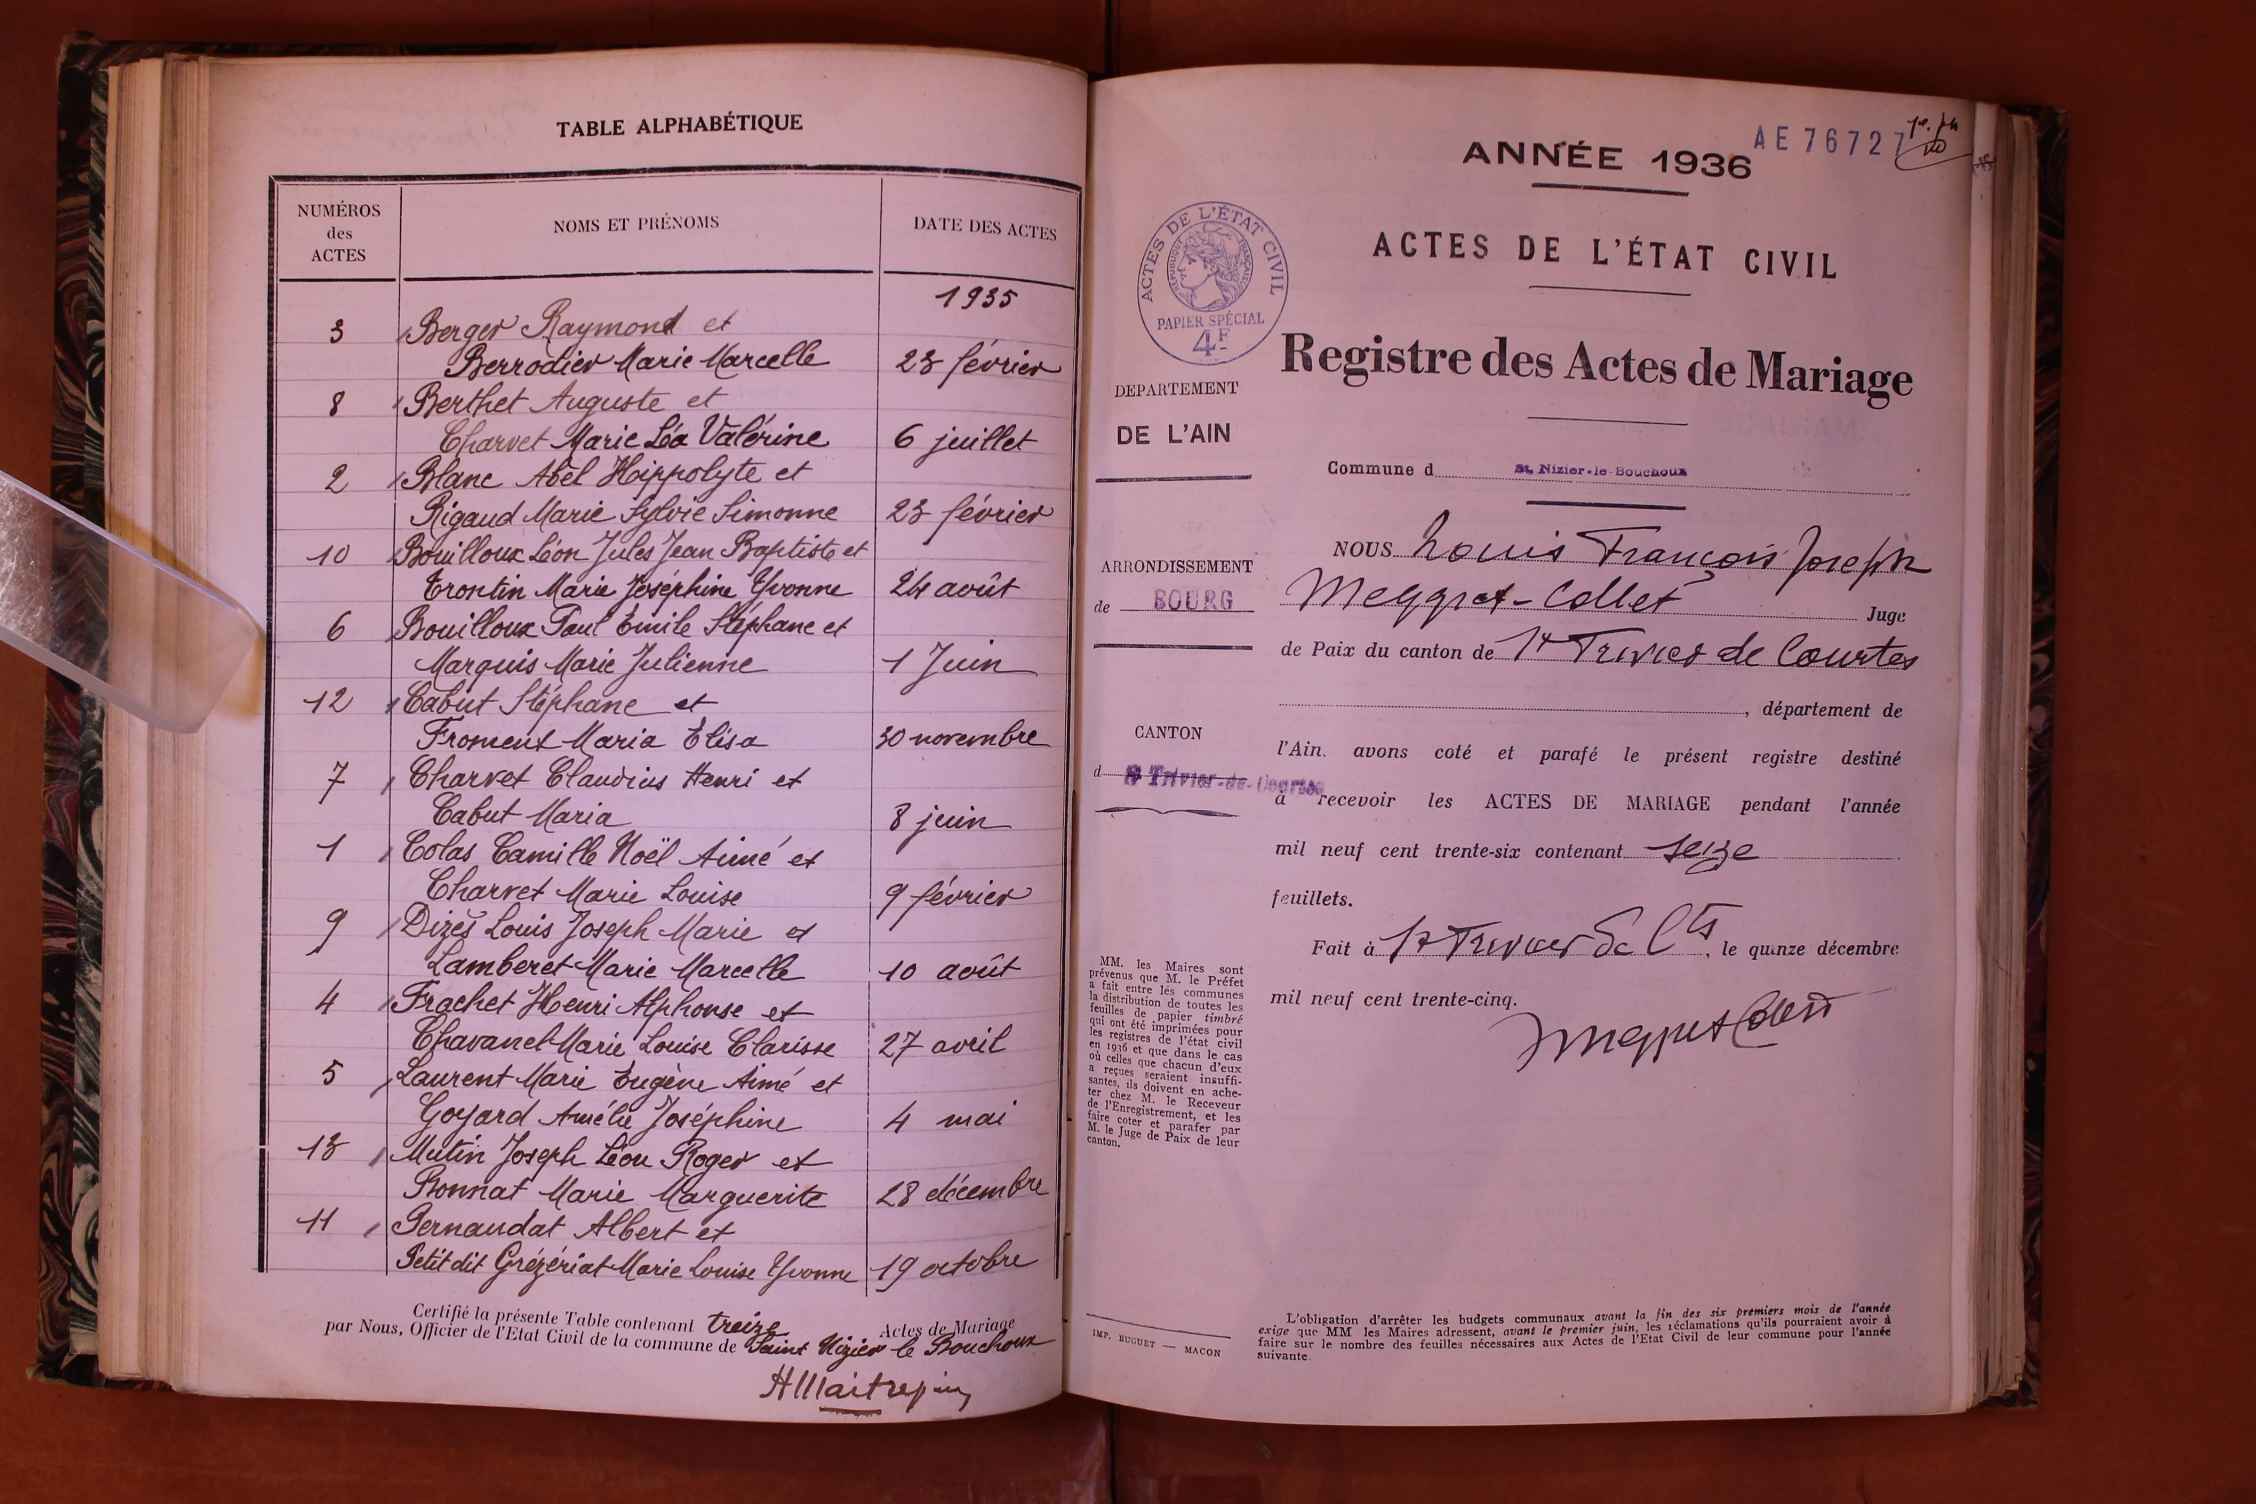 TABLE ALPHABÉTIQUE
NUMÉROS des ACTES NOMS ET PRÉNOMS DATE DES ACTES
1935
3 Berger Raymond et
Berrodier Marie Marcelle 23 février
8 Berthet Auguste et
Charvet Marie Léa Valérine 6 juillet
2 Blanc Abel Hippolyte et
Rigaud Marie Sylvie Simonne 23 février
10 Bouilloux Léon Jules Jean Baptiste et
Trontin Marie Joséphine Yvonne 24 août
6 Bouilloux Paul Emile Stéphane et
Marguis Marie Julienne 1 Juin
12 Cabut Stéphane et
Froment Maria Elisa 30 novembre
7 Charvet Claudius Henri et
Cabut Maria 8 juin
1 Colas Camille Noël Aimé et
Charvet Marie Louise 9 février
9 Dizes Louis Joseph Marie et
Lamberet Marie Marcelle 10 août
4 Frachet Henri Alphonse et
Chavanel Marie Louise Clarisse 27 avril
5 Laurent Marie Eugène Aimé et
Goyard Amélie Joséphine 4 mai
13 Mutin Joseph Léon Roger et
Bonnat Marie Marguerite 28 décembre
11 Pernaudat Albert et
Petit dit Grézériat Marie Louise Yvonne 19 octobre
Certifié la présente Table contenant treize Actes de Mariage
par Nous, Officier de l'Etat Civil de la commune de Saint Nizier le Bouchoux
AE 76727
ANNÉE 1936
ACTES DE L'ÉTAT CIVIL
Registre des Actes de Mariage
ACTES DE L'ÉTAT CIVIL
RÉPUBLIQUE FRANÇAISE
PAPIER SPÉCIAL
4F
DEPARTEMENT
DE L'AIN
ARRONDISSEMENT
de BOURG
CANTON
d St Trivier-de-Courtes
MM. les Maires sont
prévenus que M. le Préfet
a fait entre les communes
la distribution de toutes les
feuilles de papier timbré
qui ont été imprimées pour
les registres de l'état civil
en 1936 et que dans le cas
où celles que chacun d'eux
a reçues seraient insuffi-
santes, ils doivent en ache-
ter chez M. le Receveur
de l'Enregistrement, et les
faire coter et parafer par
M. le Juge de Paix de leur
canton.
IMP. BUGUET — MACON
Commune d St. Nizier-le-Bouchoux
NOUS Louis François Joseph
Meygret-Collet Juge
de Paix du canton de St Trivier de Courtes
, département de
l'Ain. avons coté et parafé le présent registre destiné
à recevoir les ACTES DE MARIAGE pendant l'année
mil neuf cent trente-six contenant seize
feuillets.
Fait à St Trivier de Cts, le quinze décembre
mil neuf cent trente-cinq.
L'obligation d'arrêter les budgets communaux avant la fin des six premiers mois de l'année
exige que MM les Maires adressent, avant le premier juin, les réclamations qu'ils pourraient avoir à
faire sur le nombre des feuilles nécessaires aux Actes de l'Etat Civil de leur commune pour l'année
suivante.